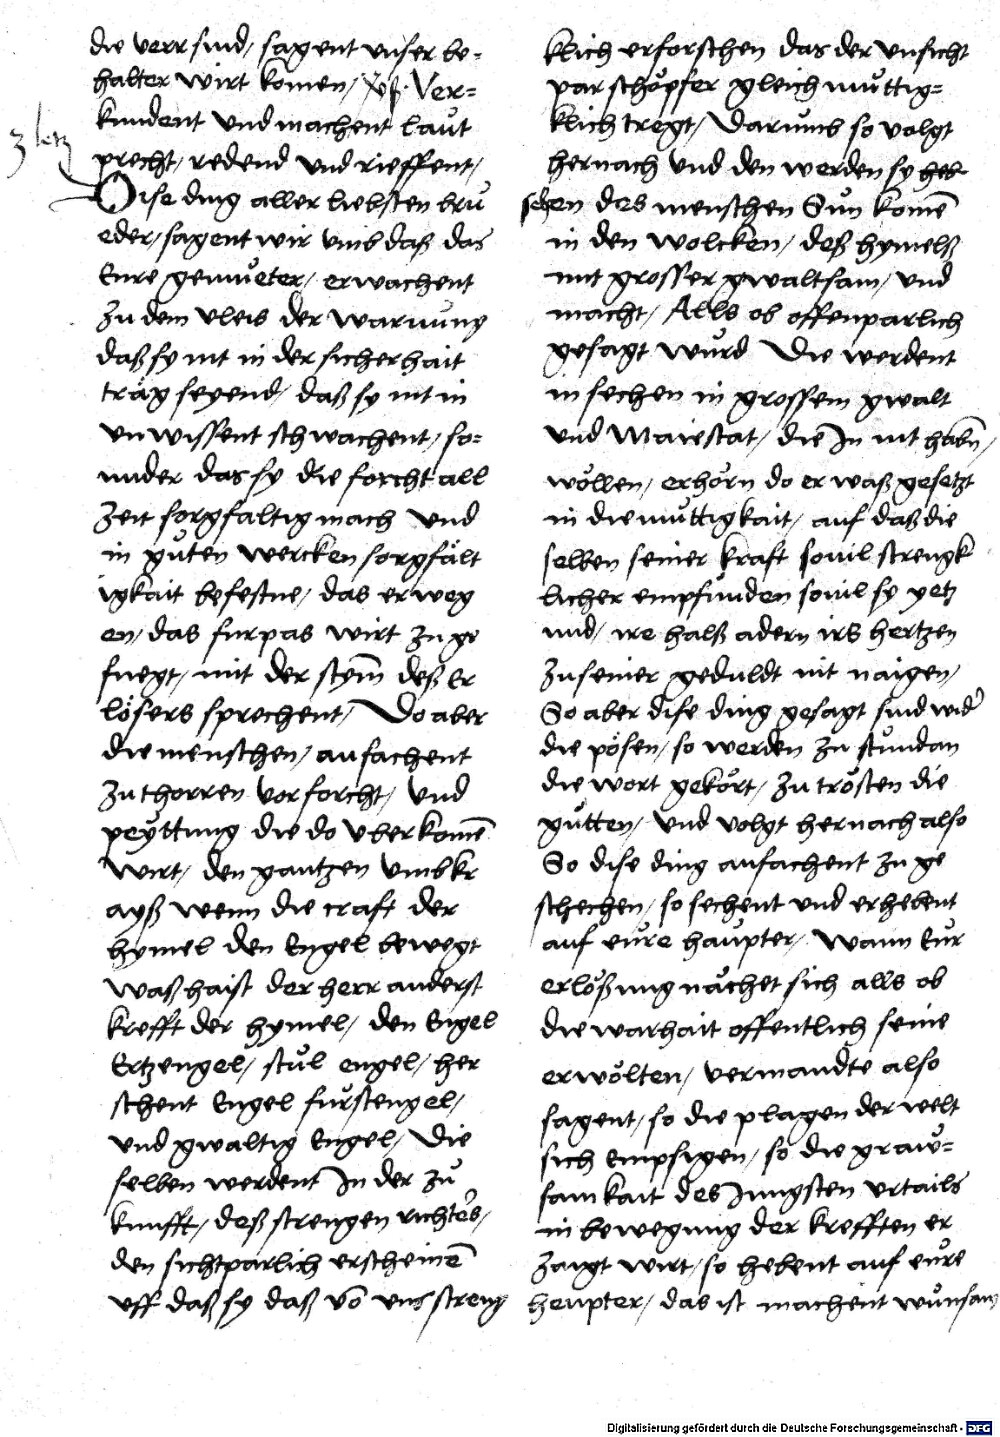 die verr sind, sagent unser be-
halter wirt komen, Ver-
kundent und machent laut
precht, redend und rieffent,
3 letz
Dise ding aller liebsten brü
eder, sagent wir umb daß das
Eure gemueter, erwachent
zu dem vleis der warnung
daß sy nit in der sicherhait
träg seyend, daß sy nit in
unwissent schwachent, so-
nnder das sy die forcht all
zeit sorgfaltig mach und
in guten wercken sorgfält
igkait befestne, das erweg
en, das furpas wirt zu ge
fuegt, mit der stym̄ deß Er
lösers sprechent, Do aber
die menschen, anfachent
zu thorren vor forcht, und
peyttung die do uberkomē
wirt, den gantzen umbkr
ayß wenn die craft der
hymel den Engel bewegt
waß haist der herr anderst
krefft der hymel, den Engel
Ertzengel, stůl engel, her
schent Engel fürstengel,
und gwaltig Engel, Die
selben werdent In der zů
kunfft, deß strengen richters,
den sichtparlich erscheinē
uff daß sy daß vō uns streng
klich erforschen das der unsicht
par schöpfer gleich muttig-
klich tregt, Darumb so volgt
hernach und den werden sy
sehen des menschen Sun komē
in den wolcken, deß hymelß
mit grosser gwaltsam, und
macht, Alls ob offenparlich
gesagt wurd Die werdent
in sechen in grossem gwalt
und Maiestat, die In nit habn,
wöllen, erhörn do er waß gesetzt
in diemuttigkait, auf daß die
selben seiner kraft sovil strengk
licher empfunden sovil sy yetz
und, ire halß adern irs hertzen
zu seiner geduldt nit naigen,
So aber dise ding gesagt sind wid'
die pösen, so werden zu stundan
die wort gekört, zu trösten die
gutten, und volgt hernach also
So dise ding anfachent zu ge
schechen, so sechent und erhebent
auf eure haupter, Wann Eur
erlößung nächet sich alls ob
die warhait offentlich seine
erwölten, vermandte also
sagent, so die plagen der welt
sich empfigen, so die graw-
samkait des Jungsten urtails
in bewegung der krefften er
zaigt wirt, so hebent auf eure
heupter, das ist machent wunsam
Digitalisierung gefördert durch die Deutsche Forschungsgemeinschaft - DFG